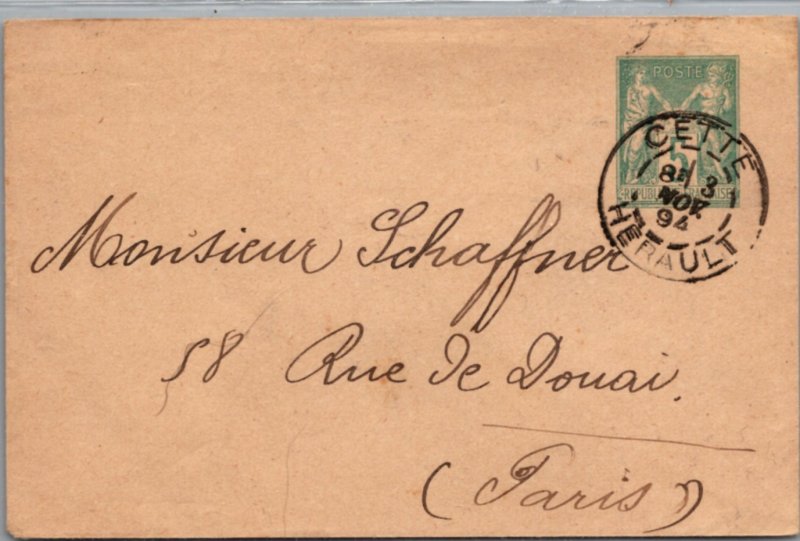 POSTE
5
RÉPUBLIQUE FRANÇAISE
CETTE
8E / 3
NOV.
94
HÉRAULT
Monsieur Schaffner
58 Rue de Douai.
(Paris)